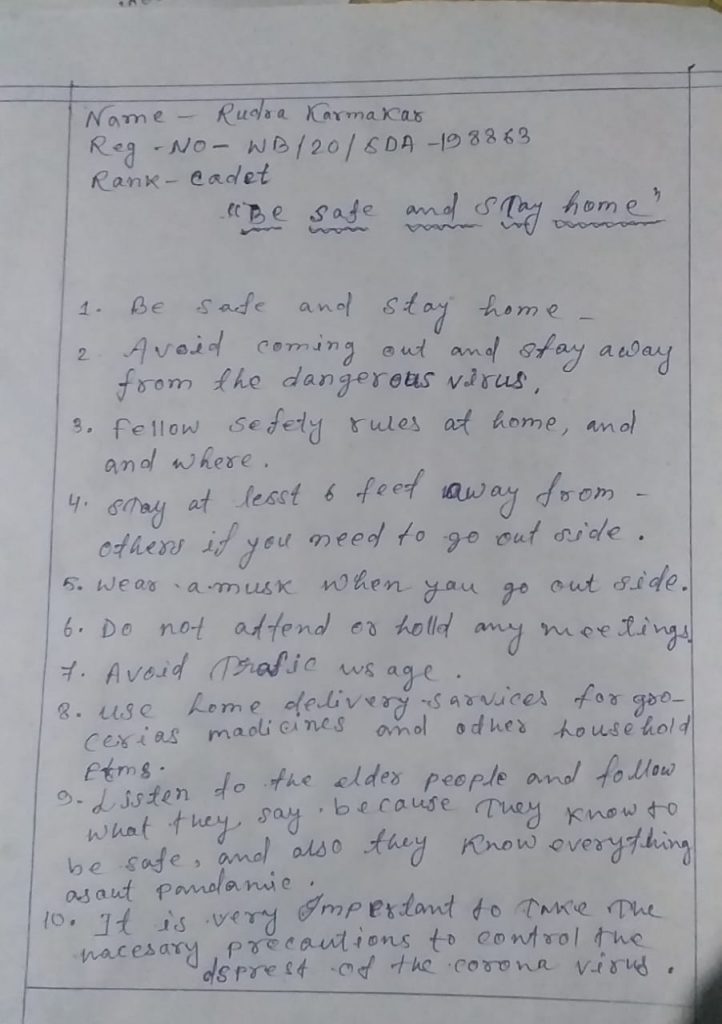 Name - Rudra Karmakar
Reg - No - WB/20/SDA -198863
Rank - Cadet
"Be safe and stay home"
1. Be safe and stay home -
2 Avoid coming out and stay away
from the dangerous virus,
3. Fellow sefety rules at home, and
and where.
4. stay at lesst 6 feet away from -
others if you need to go out side.
5. Wear a musk when yau go out side.
6. Do not attend or holld any meetings
7. Avoid Trafic usage.
8. use home delivery sarvices for gro-
cerias madicines and other household
etms.
9. Lissten to the elder people and follow
what they say. because They know to
be safe, and also they know everything
asaut pandamie.
10. It is very Impertant to Take The
nacesary precautions to control the
dsprest of the corona virus.